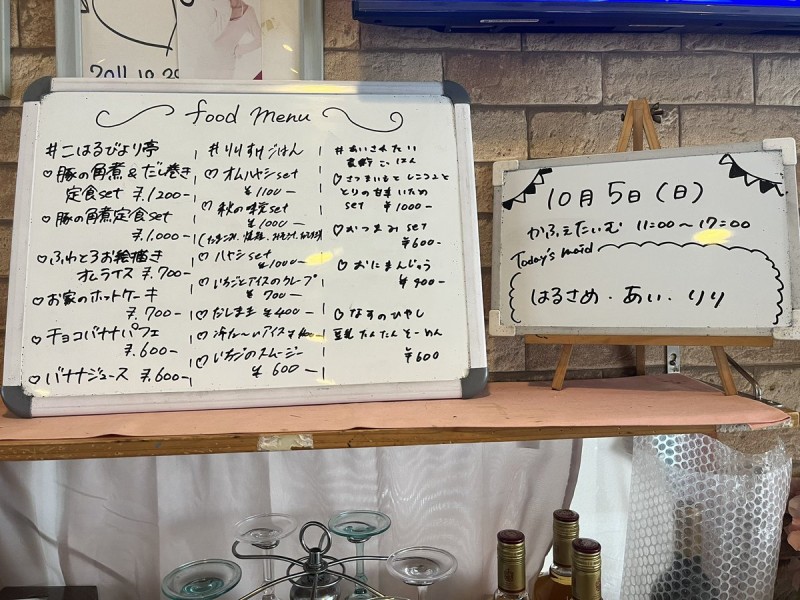 2011.10.29
food menu
#こはるびより亭
♡豚の角煮&だし巻き
定食set ¥.1200-
♡豚の角煮定食set
¥.1,000-
♡ふわとろお絵描き
オムライス ¥.700-
♡お家のホットケーキ
¥.700-
♡チョコバナナパフェ
¥.600-
♡バナナジュース ¥.600-
#りりすけごはん
♡オムハヤシset
¥1100-
♡秋の味覚set
¥1000-
♡ハヤシset
¥1000-
♡いちごとアイスのクレープ
¥700-
♡だしまき ¥400-
♡いちごのスムージー
¥600-
#あいされたい
ごはん
♡さつまいもとじこつぶと
とりの甘辛いため
set ¥1000-
♡おつまみset
¥600-
♡おにまんじゅう
¥400-
♡なすのひやし
豆乳たんたんそーめん
¥600
10月5日(日)
かふぇたいむ 11:00~17:00
Today's maid
はるさめ・あい・りり